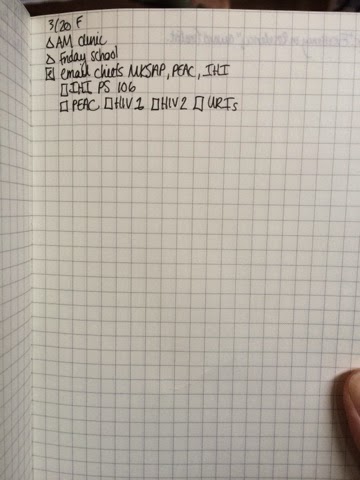 3/20 F
△ AM clinic
△ friday school
☒ email chiefs MKSAP, PEAC, IHI
☐ IHI PS 106
☐ PEAC ☐ HIV 1 ☐ HIV 2 ☐ URIs